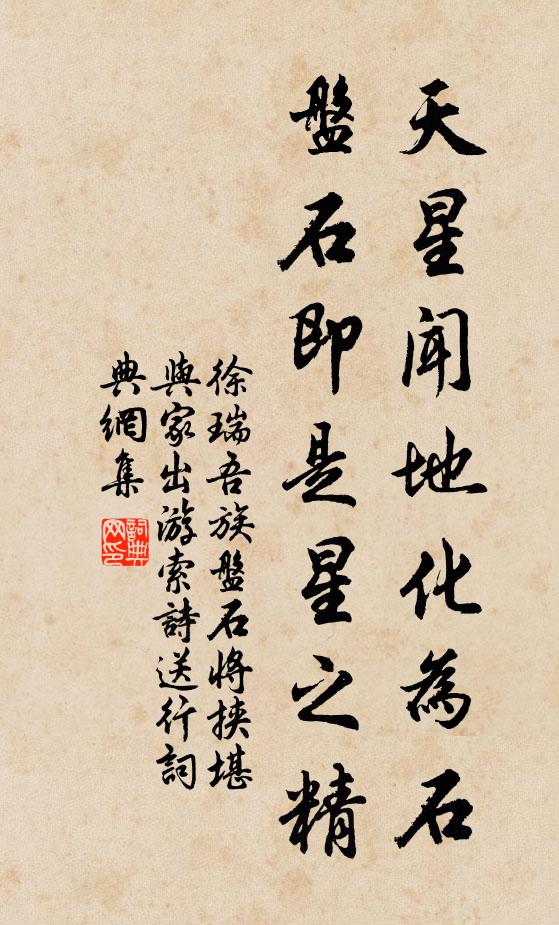 天星聞地化為石
盤石即是星之精
徐瑞吾族盤石將挾堪
輿家出游索詩送行詞
典網集
詞典網印